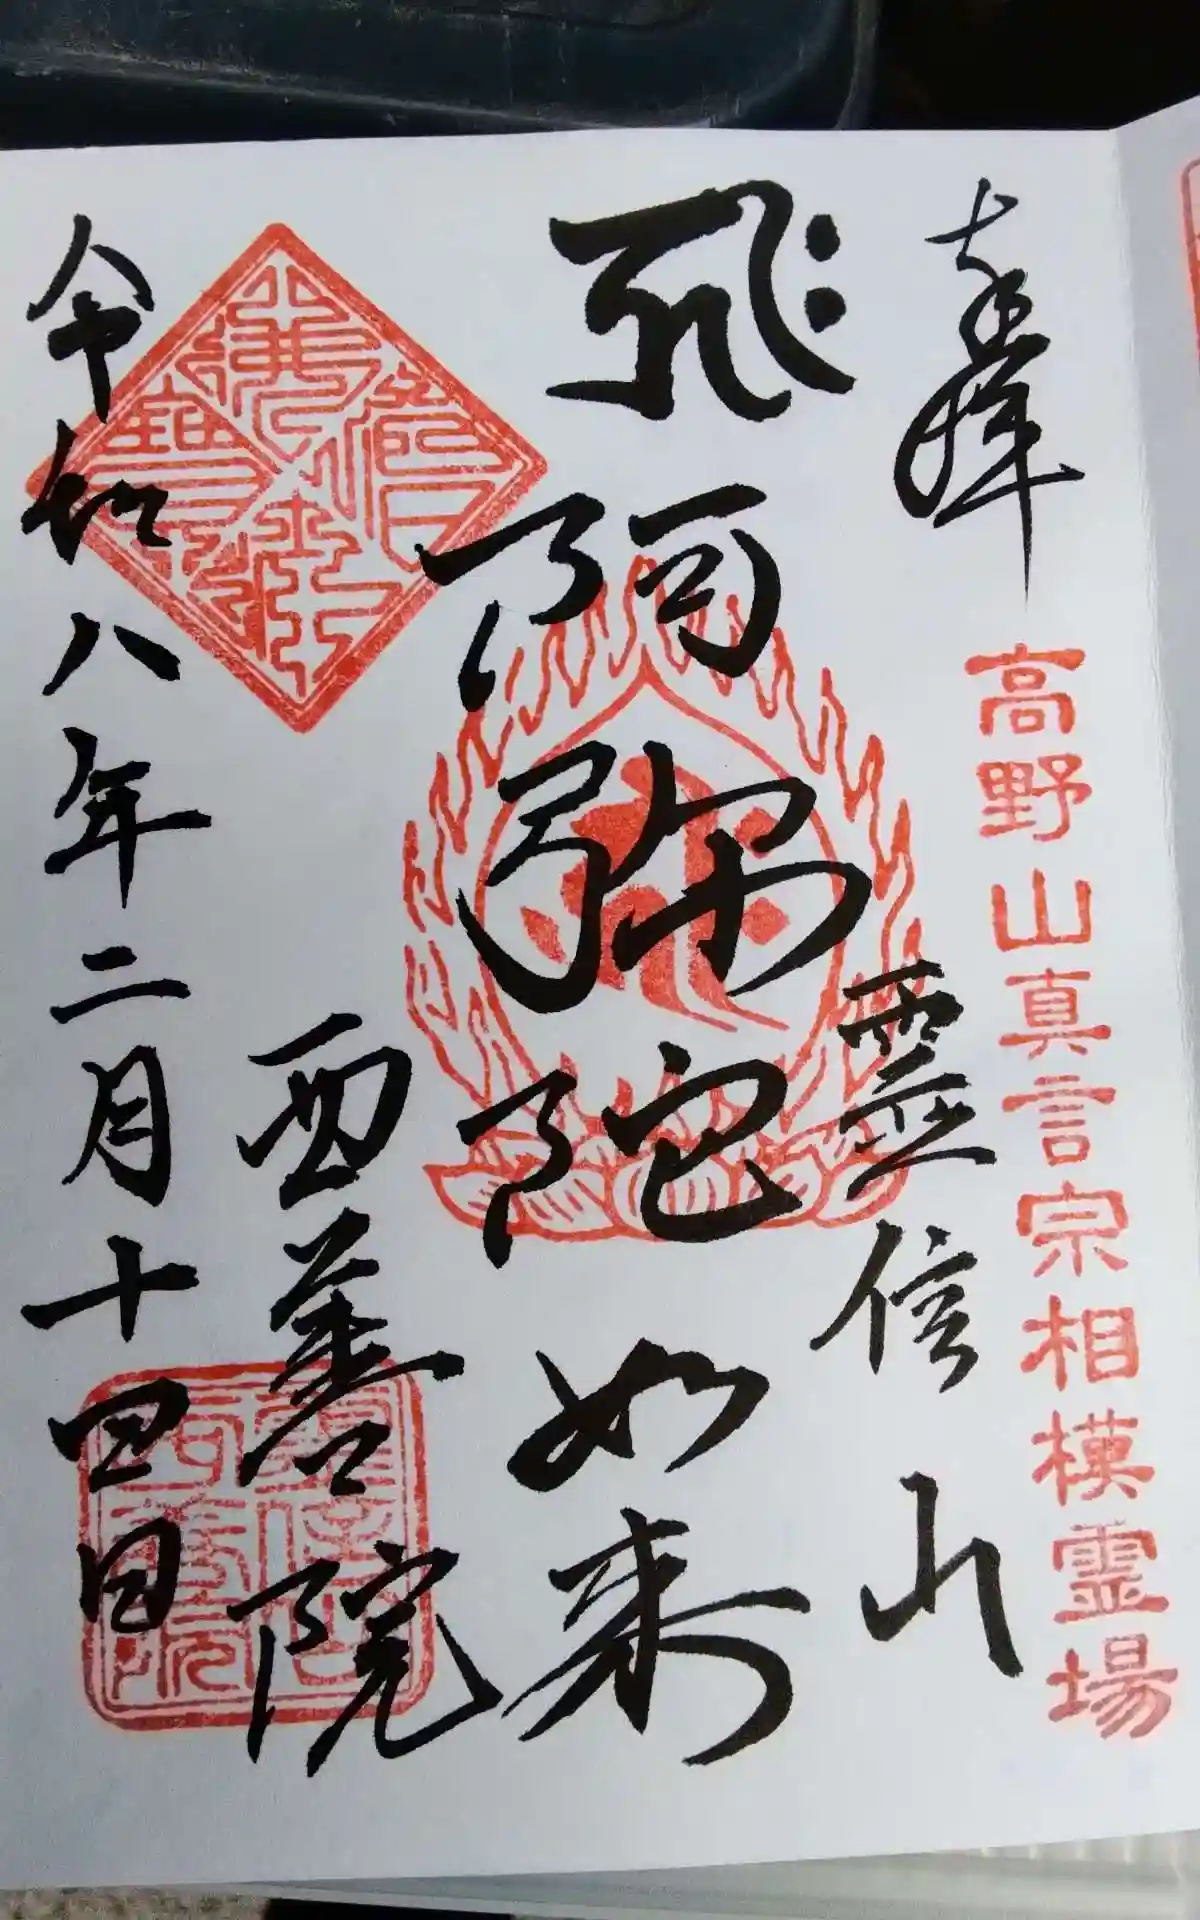 奉拝
高野山真言宗相模霊場
霊信山
阿弥陀如来
西善院
令和八年二月十四日